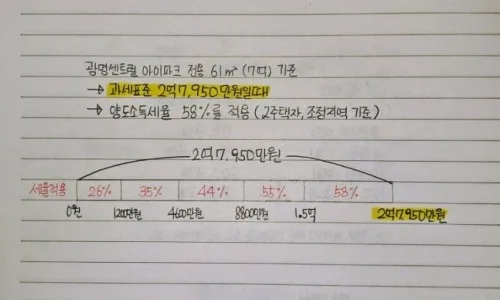 광명센트럴 아이파크 전용 61㎡ (7억) 기준
→ 과세표준 2억7,950만원일때
→ 양도소득세율 58%를 적용 (2주택자, 조정지역 기준)
2억7,950만원
세율적용 26% 35% 44% 55% 58%
0원 1200만원 4600만원 8800만원 1.5억 2억7,950만원